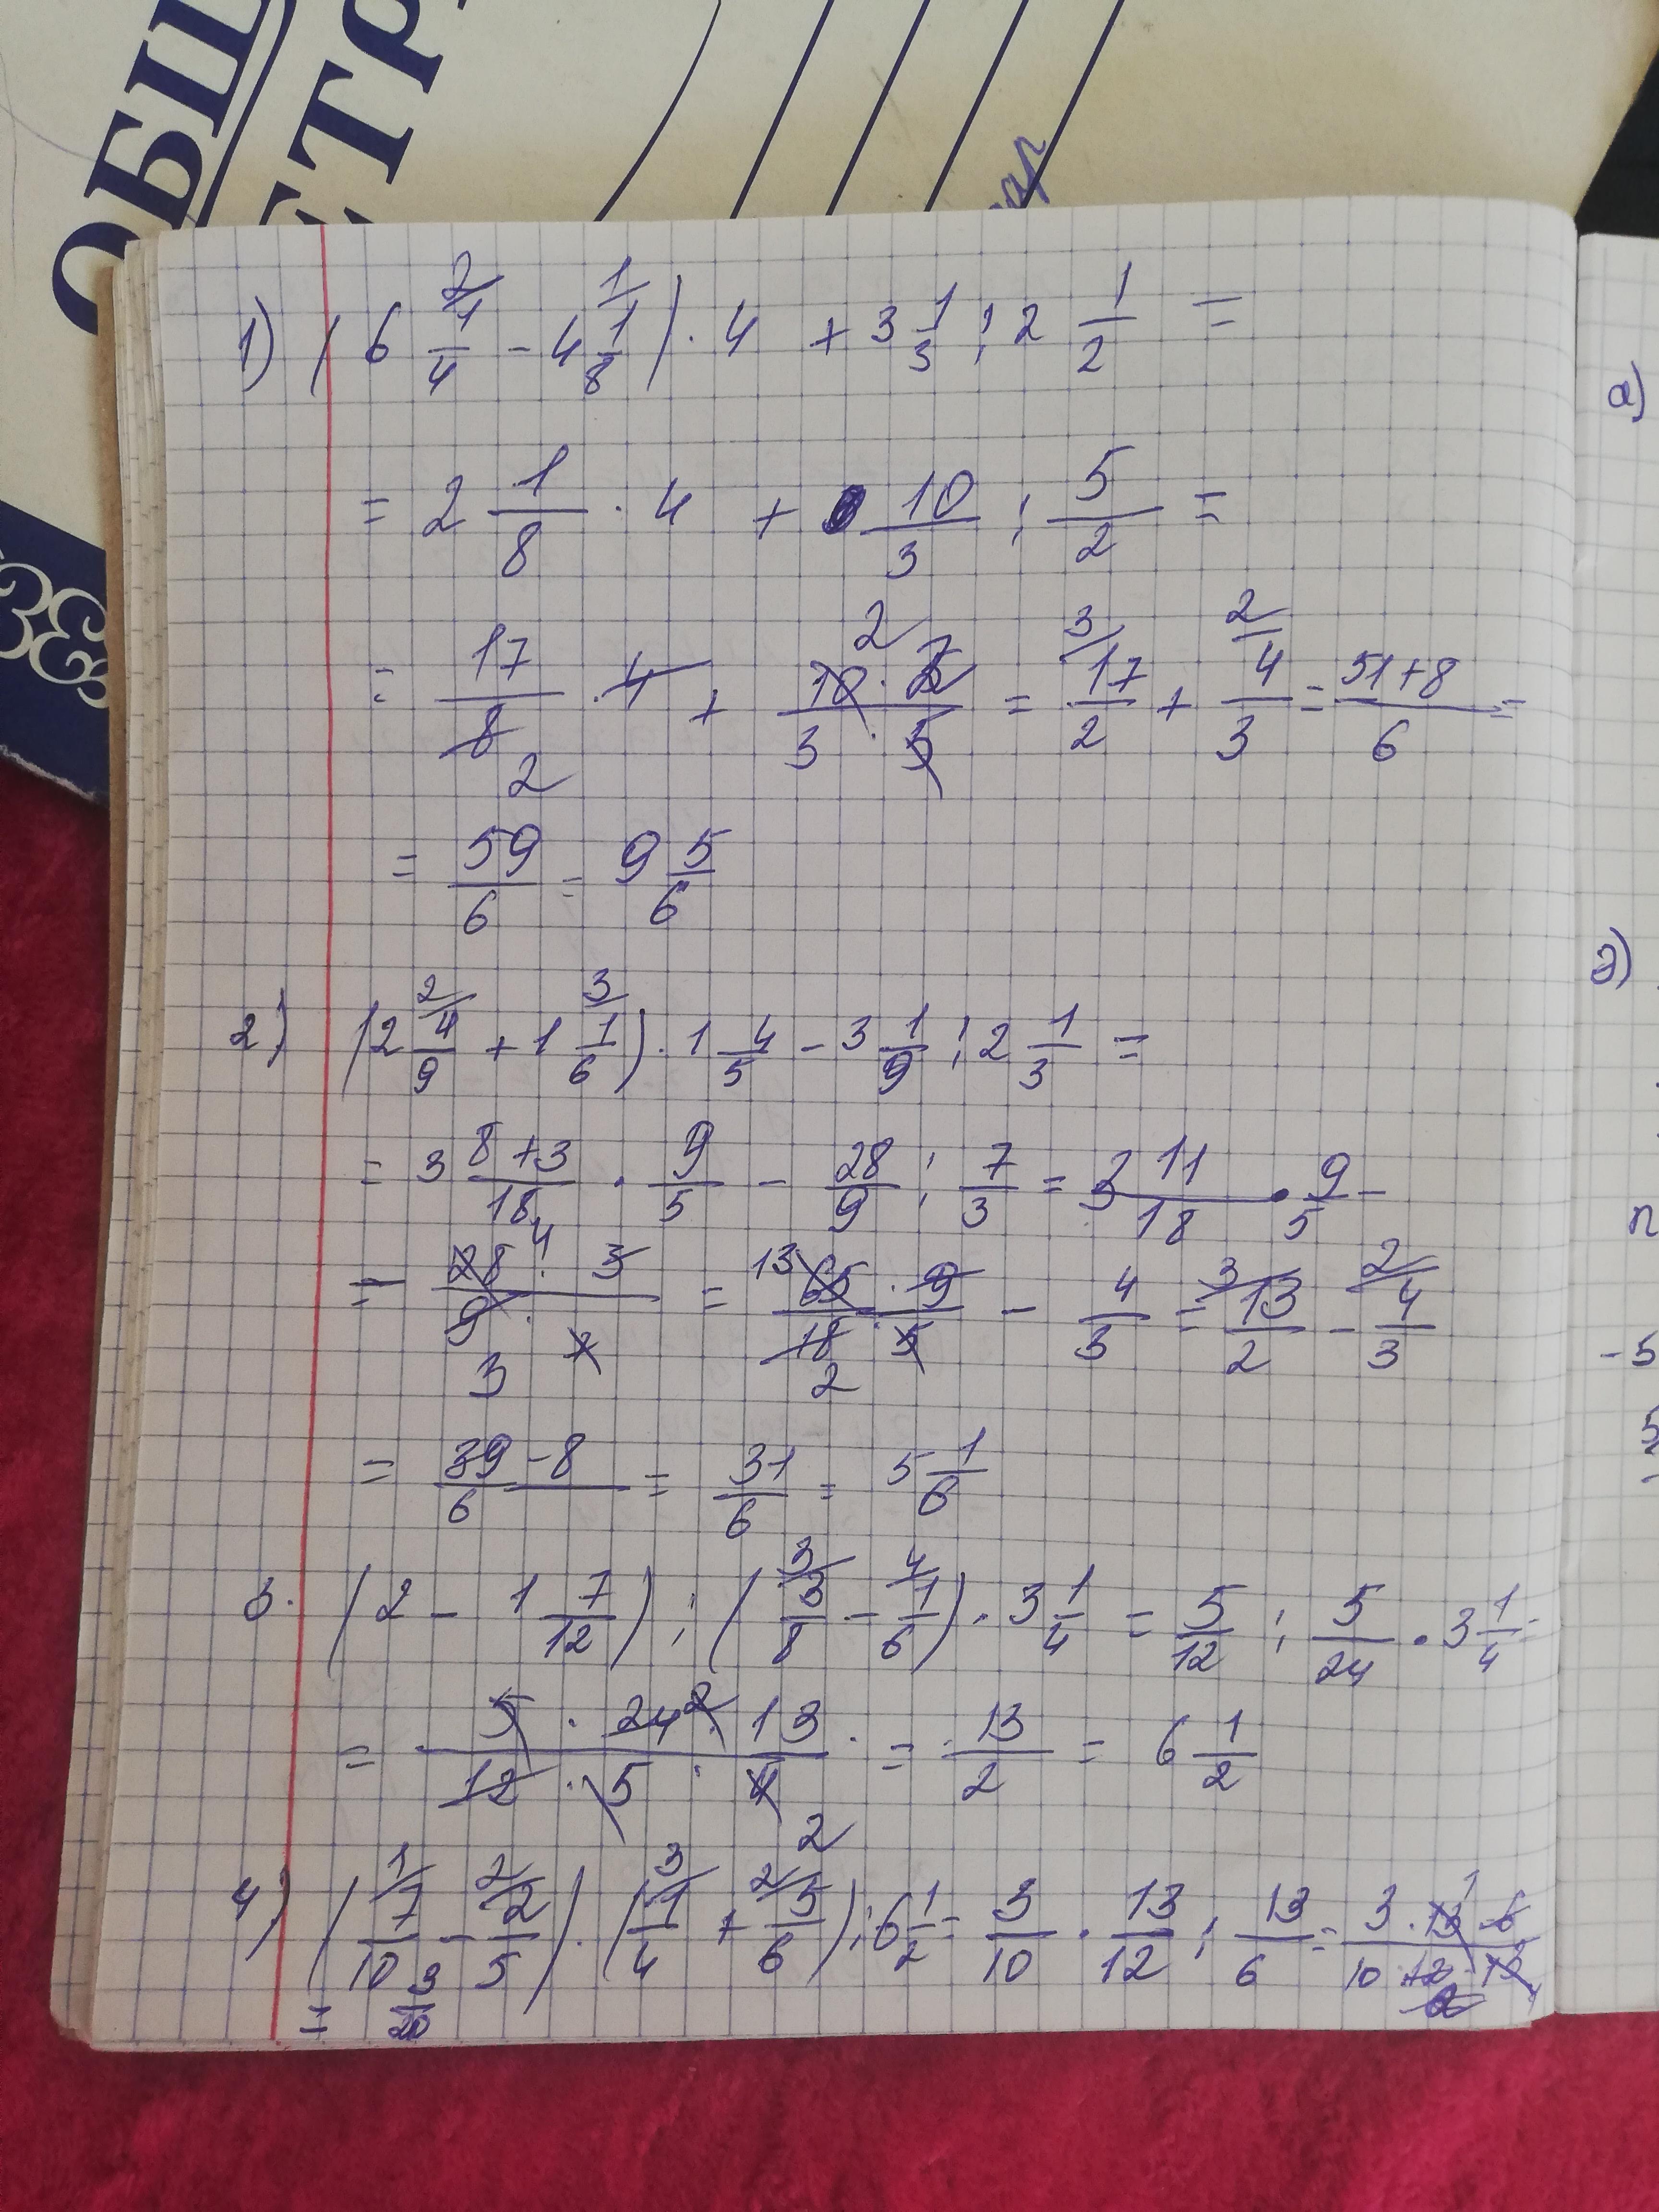 ОБЩ
ЕТР
ар
1) (6 2/ 1/4 - 4 1/ 1/8) · 4 + 3 1/3 : 2 1/2 =
= 2 1/8 · 4 + 10/3 : 5/2 =
= 17/8 2 · 4 + 2 10 · 2/3 · 5 = 3/ 17/2 + 2/ 4/3 = 51+8/6 =
= 59/6 = 9 5/6
2) (2 2/ 4/9 + 1 3/ 1/6) · 1 4/5 - 3 1/9 : 2 1/3 =
= 3 8+3/18 · 9/5 - 28/9 : 7/3 = 3 11/18 · 9/5 -
= 28 4 · 3/9 3 · 7 = 13 65 · 9/18 2 · 5 - 4/3 = 3/ 13/2 - 2/ 4/3
= 39-8/6 = 31/6 = 5 1/6
3. (2 - 1 7/12) : (3/ 3/8 - 4/ 1/6) · 3 1/4 = 5/12 : 5/24 · 3 1/4 =
= 5 · 24 2 · 13/12 · 5 · 4 = 13/2 = 6 1/2
4) (1/ 7/10 - 2/ 2/5) · (3/ 1/4 + 2/ 5/6) : 6 1/2 = 3/10 · 13/12 : 13/6 = 3 · 13 1 · 6/10 · 12 2 · 13
= 3/20
а)
-5
5